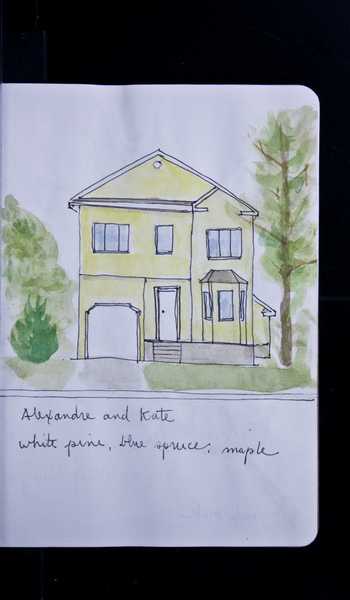 Alexandre and Kate
white pine, blue spruce, maple